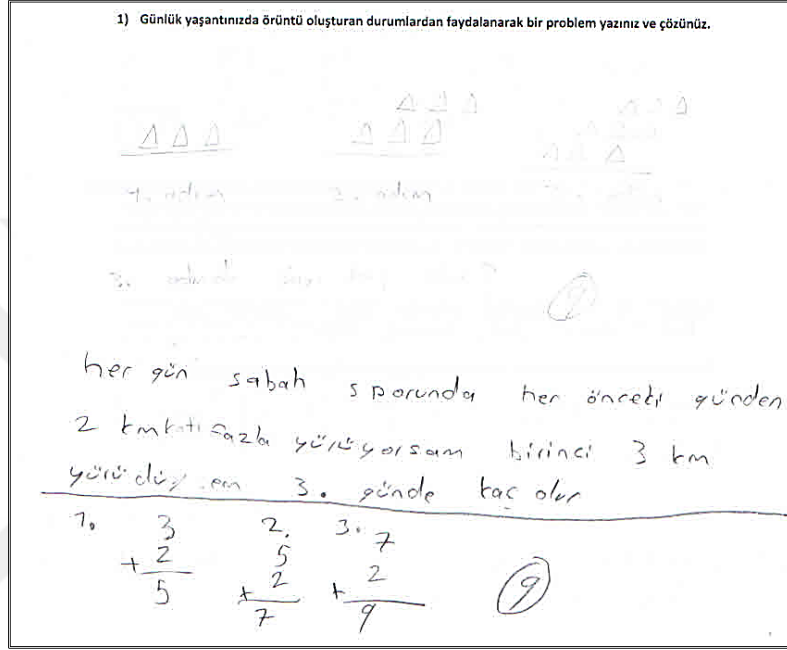 1) Günlük yaşantınızda örüntü oluşturan durumlardan faydalanarak bir problem yazınız ve çözünüz.
1. adım 2. adım
3.
9
her gün sabah sporunda her önceki günden
2 km fazla yürüyorsam birinci 3 km
yürüdüysem 3. günde kaç olur
1. 3 2. 5 3. 7
+ 2 + 2 + 2
5 7 9
9